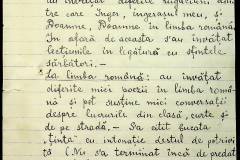 au învățat diferite rugăciuni din-
tre care Înger, îngerașul meu, și
Doamne, Doamne în limba română.
În afară de aceasta s'au învățat
lecțiunile în legătură cu sfintele
sărbători. —
La limba română: au învățat
diferite mici poezii în limba româ-
nă și pot susține mici conversații
despre lucrurile din clasă, curte și
de pe stradă. — Sa citit bucata
„Ținta” cu intonație destul de potrivi-
tă (Nu s'a terminat încă de predat